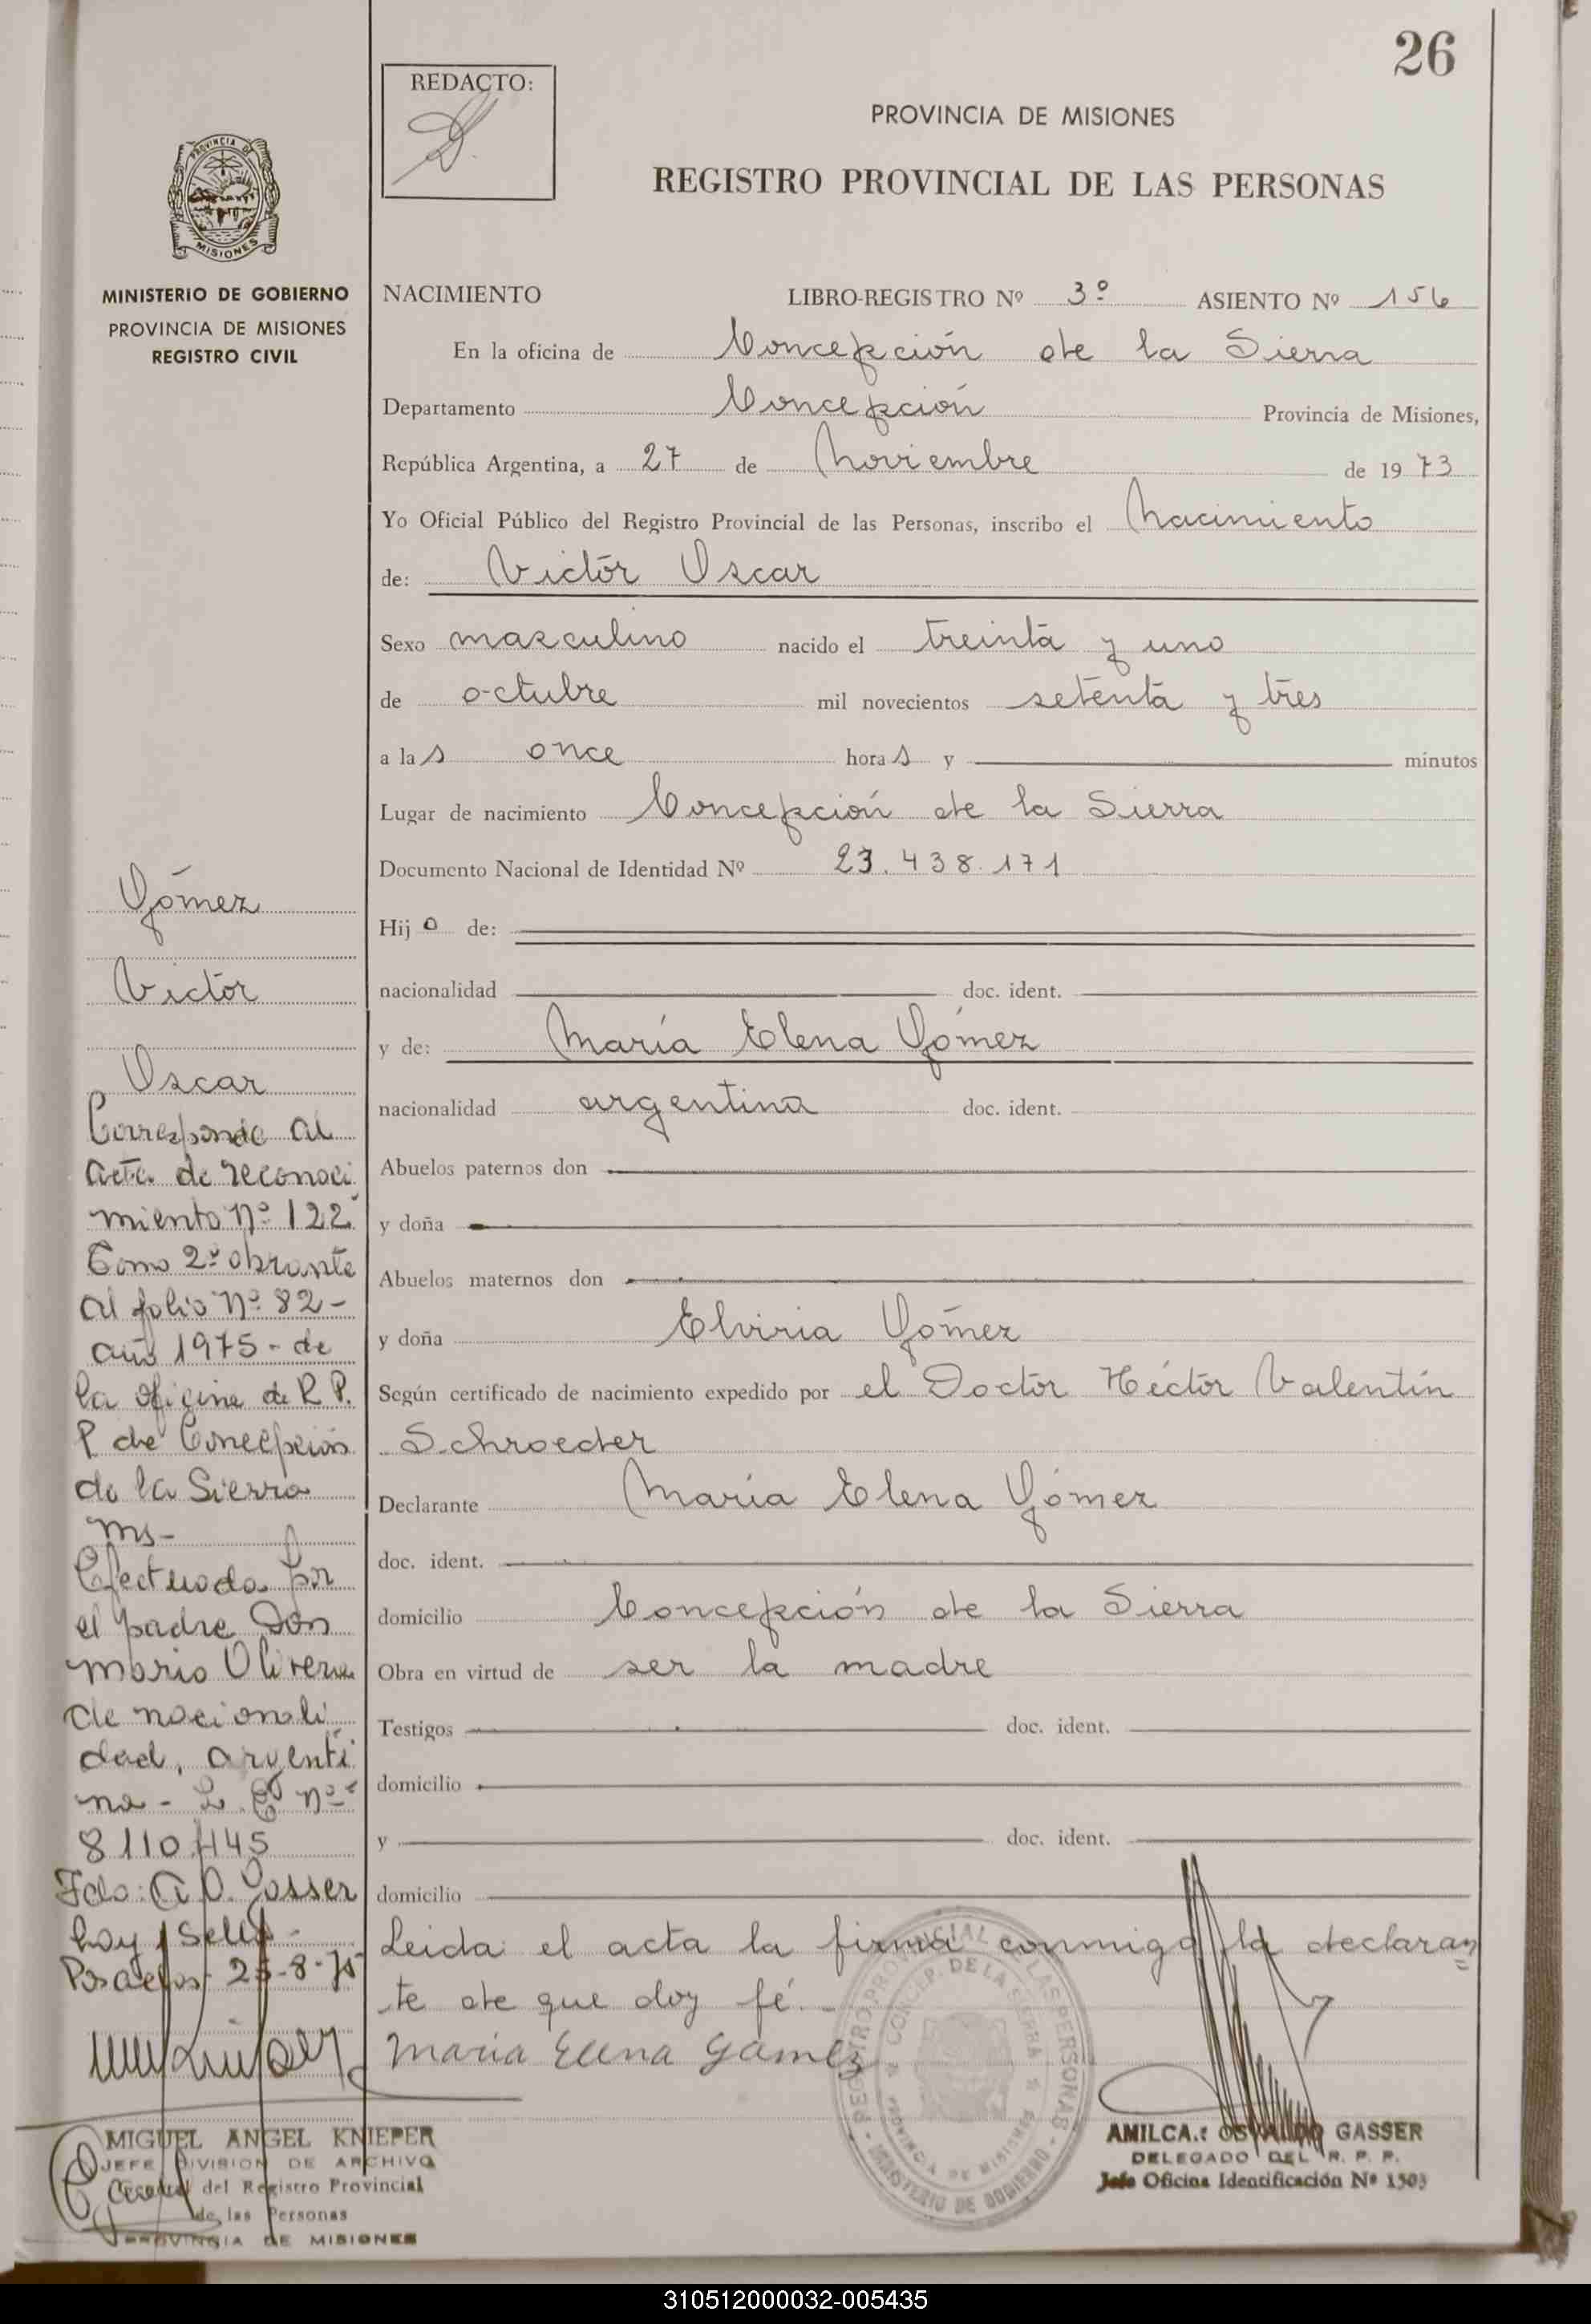 26
REDACTO:
PROVINCIA DE MISIONES
REGISTRO PROVINCIAL DE LAS PERSONAS
PROVINCIA DE
MISIONES
MINISTERIO DE GOBIERNO
PROVINCIA DE MISIONES
REGISTRO CIVIL
NACIMIENTO LIBRO-REGISTRO Nº 3º ASIENTO Nº 156
En la oficina de Concepción de la Sierra
Departamento Concepción Provincia de Misiones,
República Argentina, a 27 de Noviembre de 1973
Yo Oficial Público del Registro Provincial de las Personas, inscribo el Nacimiento
de: Victor Oscar
Sexo masculino nacido el treinta y uno
de octubre mil novecientos setenta y tres
a las once horas y minutos
Lugar de nacimiento Concepción de la Sierra
Documento Nacional de Identidad Nº 23.438.171
Hijo de:
nacionalidad doc. ident.
y de: María Elena Gómez
nacionalidad argentina doc. ident.
Abuelos paternos don
y doña
Abuelos maternos don
y doña Elviria Gómez
Según certificado de nacimiento expedido por el Doctor Héctor Valentín
Schroeder
Declarante María Elena Gómez
doc. ident.
domicilio Concepción de la Sierra
Obra en virtud de ser la madre
Testigos doc. ident.
domicilio
y doc. ident.
domicilio
Leida el acta la firma conmigo la declaran
te de que doy fé.-
Maria Elena Gamez
Gómez
Victor
Oscar
Corresponde al
acta de reconoci
miento Nº 122
Tomo 2º obrante
al folio Nº 82-
año 1975- de
la oficina de R.P.
P de Concepción
de la Sierra
Ms-
Efectuada por
el padre Don
Mario Olivera
de nacionali
dad, argenti
na - L.E Nº
8110.445
Fdo: A.O. Gasser
hay sello -
Posadas 25-8-75
MIGUEL ANGEL KNIEPER
JEFE DIVISION DE ARCHIVO
General del Registro Provincial
de las Personas
PROVINCIA DE MISIONES
REGISTRO PROVINCIAL DE LAS PERSONAS
CONCEP. DE LA SIERRA
PROVINCIA DE MISIONES
MINISTERIO DE GOBIERNO
AMILCAR OSVALDO GASSER
DELEGADO DEL R. P. P.
Jefe Oficina Identificación Nº 1503
310512000032-005435